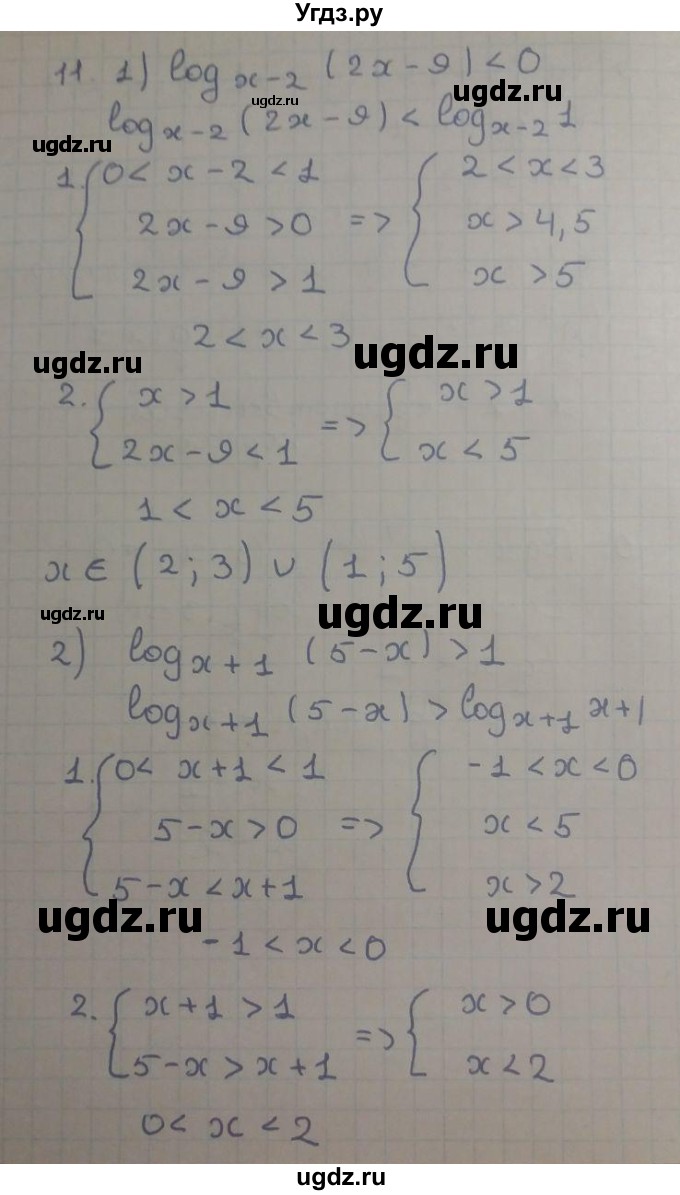 Угдз.ру
11. 1) log x-2 (2x-9) < 0
ugdz.ru
ugdz.ru
log x-2 (2x-9) < log x-2 1
ugdz.ru
ugdz.ru
1. { 0 < x-2 < 1 { 2 < x < 3
2x-9 > 0 => x > 4,5
2x-9 > 1 x > 5
2 < x < 3
ugdz.ru
ugdz.ru
2. { x > 1 => { x > 1
2x-9 < 1 x < 5
1 < x < 5
x ∈ (2; 3) ∪ (1; 5)
ugdz.ru
ugdz.ru
2) log x+1 (5-x) > 1
log x+1 (5-x) > log x+1 x+1
1. { 0 < x+1 < 1 { -1 < x < 0
5-x > 0 => x < 5
5-x < x+1 x > 2
ugdz.ru
ugdz.ru
-1 < x < 0
2. { x+1 > 1 => { x > 0
5-x > x+1 x < 2
0 < x < 2
ugdz.ru